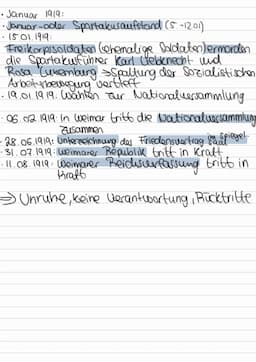 • Januar 1919:
• Januar-oder Spartakusaufstand (5.-12.01)
• 15.01.1919:
Freikorpssoldaten (ehemalige Soldaten) ermorden
die Spartakusführer Karl Liebknecht und
Rosa Luxemburg ⇒ Spaltung der Sozialistischen
Arbeiterbewegung vertieft
• 19.01.1919: Wahlen zur Nationalversammlung
• 06.02.1919: In Weimar tritt die Nationalversammlung
zusammen
• 28.06.1919: Unterzeichnung des Friedensvertrag im Spiegel saal
• 31.07.1919: Weimarer Republik tritt in Kraft
• 11.08.1919: Weimarer Reichsverfassung tritt in
Kraft
⇒ Unruhe, keine Verantwortung, Rücktritte